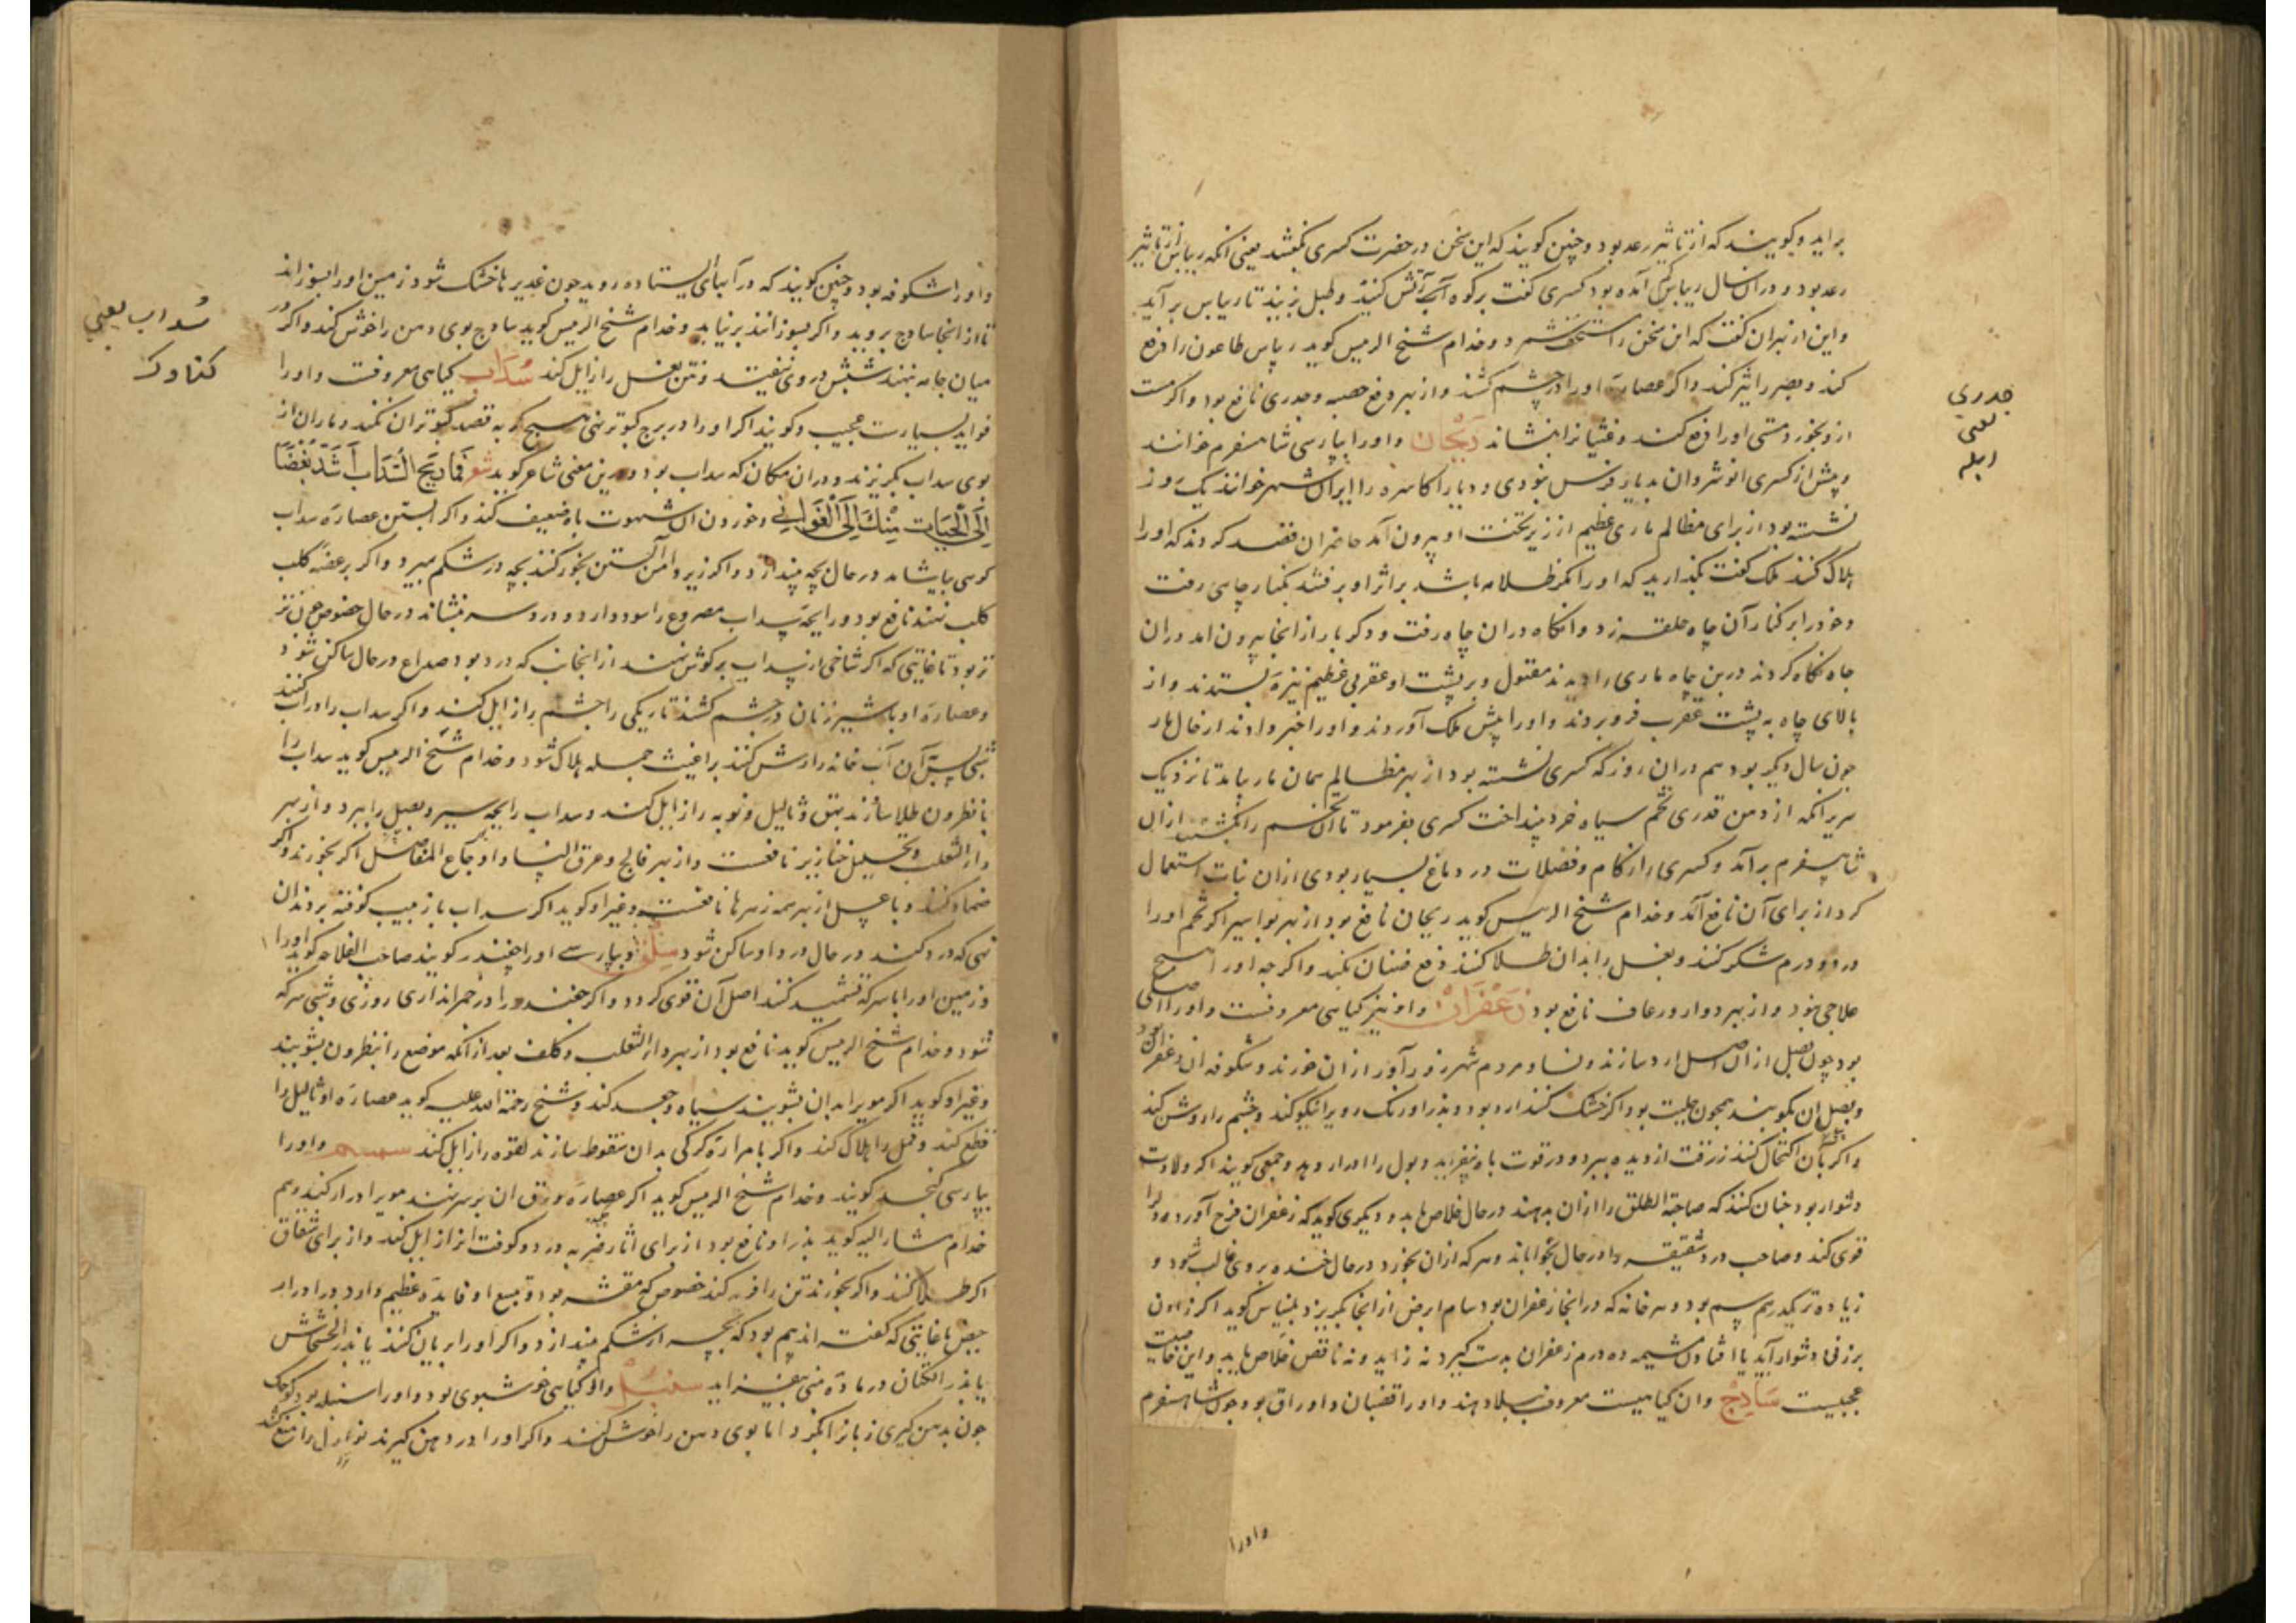 براید و گویند که از تاثیر رعد بود و چنین گویند که این سخن در حضرت کسری بگفتند یعنی آنکه ریباس از تاثیر
رعد بود و در آن سال ریباس کم آمده بود کسری گفت بر کوه آتش کنند و طبل زنند تا ریباس بر آید
و این از بهر آن گفت که این سخن را مستخف شمرد و خدام شیخ الرییس گوید ریباس طاعون را دفع
کند و بصر را تیز کند و اگر عصاره او را در چشم کشند و از بهر دفع حصبه و جدری نافع بود و اگر مست
ازو بخورد مستی او را دفع کند و غثیان را بنشاند رَیْحَان و او را بپارسی شاهسفرم خوانند
و پیش از کسری انوشروان بدیار فرس نبودی و دیار اکاسره را ایران شهر خوانند یک روز
نشسته بود از برای مظالم ماری عظیم از زیر تخت او بیرون آمد حاضران قصد کردند که او را
هلاک کنند ملک گفت بگذارید که او را مگر ظلامه باشد بر اثر او برفتند بکنار چاهی رفت
و خود را بر کنار آن چاه حلقه زد و آنگاه در آن چاه رفت و دگر بار از آنجا بیرون آمد در آن
چاه نگاه کردند در بن چاه ماری را دیدند مقتول و بر پشت او عقربی عظیم نیزه بستدند و از
بالای چاه به پشت عقرب فرو بردند و او را پیش ملک آوردند و او را خبر دادند از حال مار
چون سال دیگر بود هم در آن روز که کسری نشسته بود از بهر مظالم همان مار بیامد تا نزدیک
سریر آنگه از دهن قدری تخم سیاه خرد بینداخت کسری بفرمود تا آن تخم را بکشتند از آن
شاهسفرم برآمد و کسری را زکام و فضلات در دماغ بسیار بودی از آن نبات استعمال
کرد از برای آن نافع آمد و خدام شیخ الرییس گوید ریحان نافع بود از بهر بواسیر اگر تخم او را
در دو درم شکر کنند و بغل را بدان طلا کنند دفع صنان بکند و اگر چه او را هیچ
علاجی نبود و از بهر دوار و رعاف نافع بود زَعْفَرَان و او نیز گیاهی معروفست و او را اصلی
بود چون بصل از آن اصل آرد سازند و نسا و مردم شهر زور آور از آن خورند و شکوفه آن زعفران بود
و بصل آن بکوبند همچون حلبت بود اگر خشک کنند آرد بود و بذر او رنگ روی را نیکو کند و چشم را روشن کند
و اگر بآن اکتحال کنند زرقت از دیده ببرد و در قوت باه بیفزاید و بول را ادرار دهد و جمعی گویند اگر ولادت
دشوار بود چنان کنند که صاحبة الطلق را از آن بدهند در حال خلاص یابد و دیگری گوید که زعفران فرح آورد و دل را
قوی کند و صاحب درد شقیقه را در حال بخواباند و هر که از آن بخورد در حال خنده بر وی غالب شود و
زیاده تر یکدرهم سم بود و هر خانه که در آنجا زعفران بود سام ابرص از آنجا بگریزد بلنیاس گوید اگر زادن
بر زنی دشوار آید یا افتادن مشیمه ده درم زعفران بدست گیرد نه زاید و نه ناقص خلاص یابد و این خاصیت
عجیبست سَاذِج و آن گیاهیست معروف ببلاد هند و او را قضبان و اوراق بود چون شاهسفرم
و او را
جدری
یعنی
ابله
و او را شکوفه بود و چنین گویند که در آبهای ایستاده روید چون غدیر ها خشک شود زمین او را بسوزانند
تا از آنجا ساذج بروید و اگر بسوزانند برنیاید و خدام شیخ الرییس گوید ساذج بوی دهن را خوش کند و اگر در
میان جامه نهند شپش در وی نیفتد و نتن بغل را زایل کند سُدَاب گیاهی معروفست و او را
فواید بسیارست عجیب و گویند اگر او را در برج کبوتر نهی هیچ گربه قصد کبوتران نکند و ماران از
بوی سداب بگریزند و در آن مکان که سداب بود و درین معنی شاعر گوید شعر فَمَا رِیحُ السَّدَابِ اَشَدُّ بُغْضًا
اِلَی الْحَیَّاتِ مِنْكَ اِلَی الْغَوَانِی و خوردن آن شهوت باه ضعیف کند و اگر آبستن عصاره سداب
کوهی بیاشامد در حال بچه بیندازد و اگر زیر دامن آبستن بخور کنند بچه در شکم بمیرد و اگر بر عضه کلب
کلب نهند نافع بود و رایحه سداب مصروع را سود دارد و درد سر بنشاند در حال خصوص چون تر
تر بود تا غایتی که اگر شاخی از سداب بر گوش نهند از آنجانب که درد بود صداع در حال ساکن شود
و عصاره او با شیر زنان در چشم کشند تاریکی را چشم برا زایل کند و اگر سداب را در آب کنند
شبی پس آن آب خانه را رش کنند براغیث جمله هلاک شود و خدام شیخ الرییس گوید سداب را
با نطرون طلا سازند بهق و ثالیل و توبه را زایل کند و سداب رایحه سیر و بصل را ببرد و از بهر
داء الثعلب و تحلیل خنازیر نافعست و از بهر فالج و عرق النسا و اوجاع المفاصل اگر بخورند و اگر
ضماد کنند و با عسل از بهر همه زهرها نافعست و غیر او گوید اگر سداب با زبیب کوفته بر دندان
نهی که درد کند در حال درد او ساکن شود سِلْق و بپارسی او را چغندر گویند صاحب الفلاحه گوید او را
و زمین او را با سرکه تشمید کنند اصل آن قوی گردد و اگر چغندر را در خمر اندازی روزی و شبی سرکه
شود و خدام شیخ الرییس گوید نافع بود از بهر داء الثعلب و کلف بعد از آنکه موضع را بنطرون بشویند
و غیر او گوید اگر موی را بدان بشویند سیاه و جعد کند و شیخ رحمة الله علیه گوید عصاره او ثالیل را
قطع کند و قمل را هلاک کند و اگر با مراره کرکی بدان سعوط سازند لقوه را زایل کند سمسم و او را
بپارسی کنجد گویند و خدام شیخ الرییس گوید اگر عصاره ورق آن بر سر نهند موی را دراز کند و هم
خدام مشار الیه گوید بذر او نافع بود از برای آثار ضربه و درد و کوفت آنرا زایل کند و از برای شقاق
اگر طلا کنند و اگر بخورند تن را فربه کند خصوص که مقشر بود و نقیع او فایده عظیم دارد در ادرار
حیض تا غایتی که گفته اند بیم بود که بچه از شکم بیندازد و اگر او را بریان کنند یا بذر الخشخاش
یا بذر الکتان در ماده منی بیفزاید سنبل و او گیاهی خوشبوی بود و او را سنبله بود کوچک
چون بدهن گیری زبان را بگزد اما بوی دهن را خوش کند و اگر او را در دهن گیرند نوازل را منع کند
سُداب یعنی